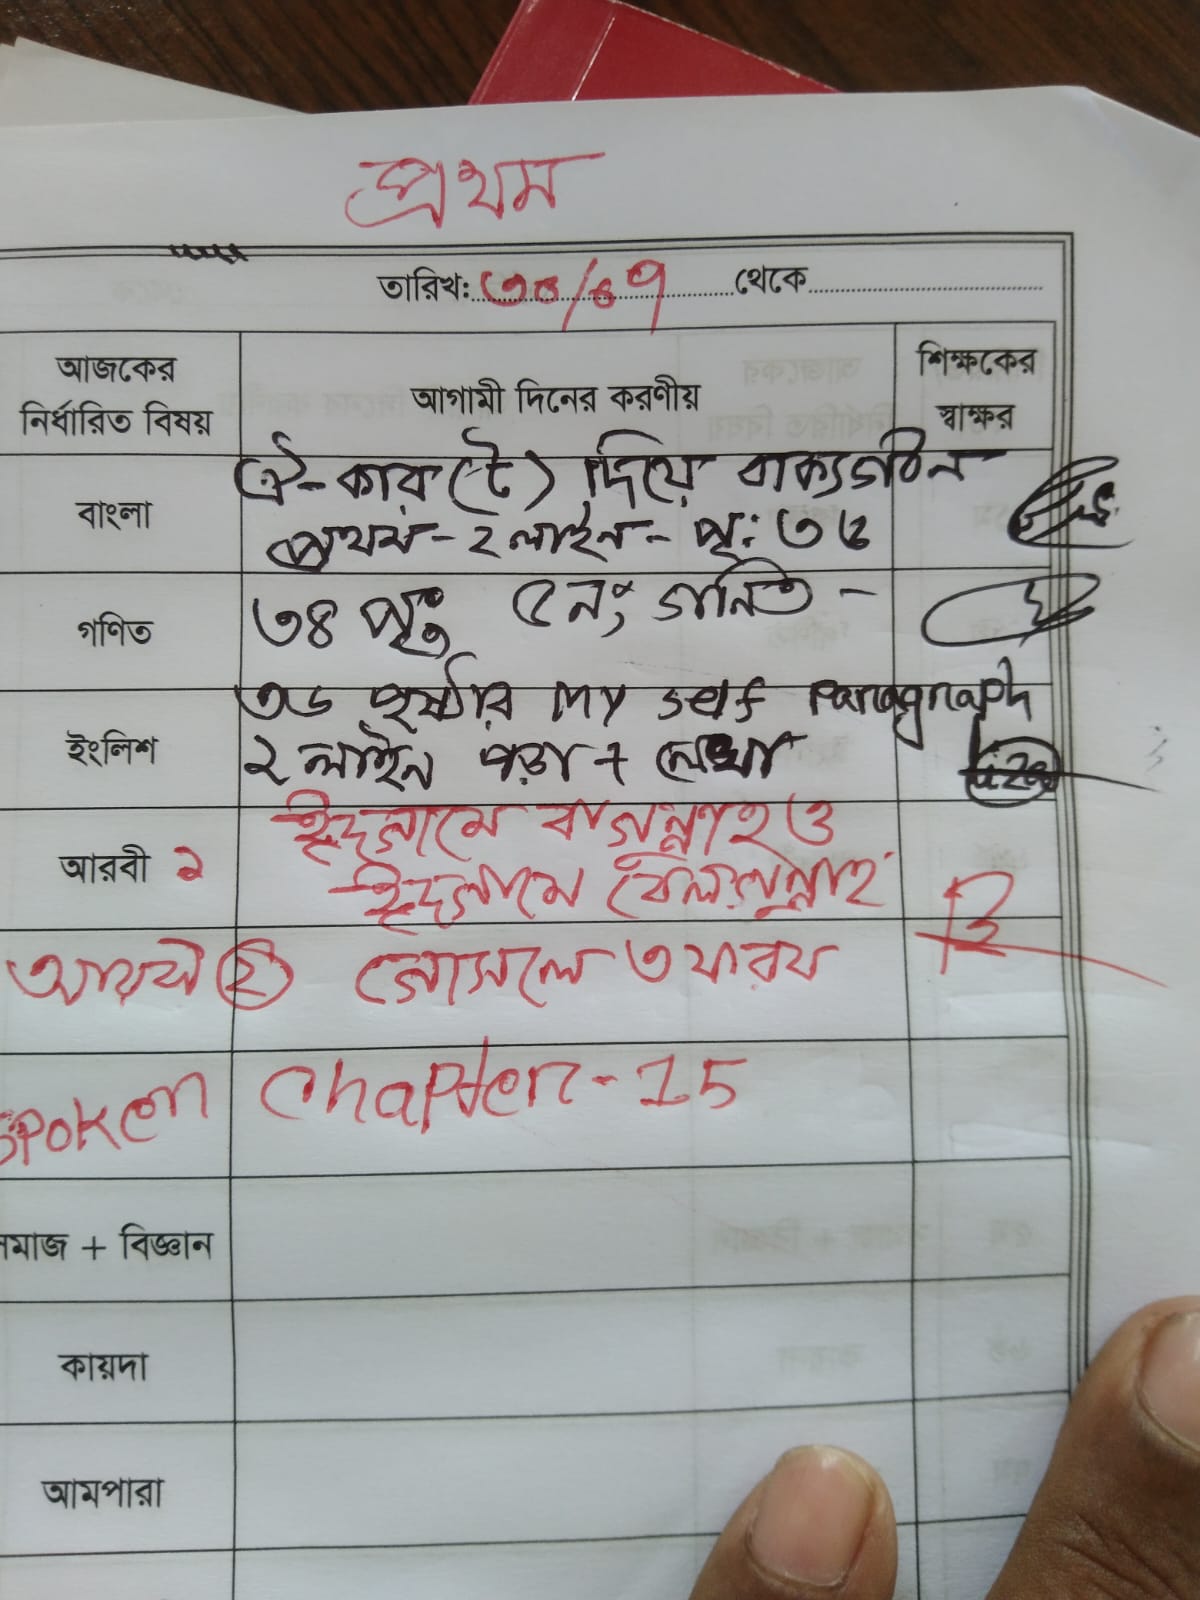 প্রথম
তারিখ: ৩০/৬৭ থেকে
আজকের নির্ধারিত বিষয়
আগামী দিনের করণীয়
শিক্ষকের স্বাক্ষর
বাংলা
ঐ-কার (ৈ) দিয়ে বাক্যগঠন
প্রথম - ২ লাইন - পৃ: ৩৬
গণিত
৩৪ পৃঃ ৫নং গনিত -
ইংলিশ
৩৬ পৃষ্ঠার my self Paragraph
২ লাইন পড়া + লেখা
আরবী ১
ইদগামে বাগুন্নাহ ও
ইদগামে বেলাগুন্নাহ
আরবী ২ গোসলে ৩ ফরয
Spoken Chapter-15
সমাজ + বিজ্ঞান
কায়দা
আমপারা